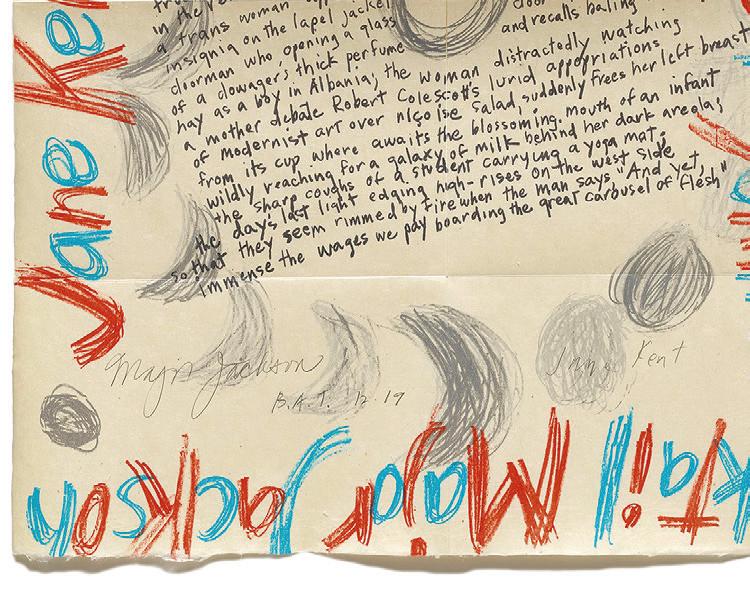 in the
a trans woman
insignia on the lapel jacket
doorman who, opening a glass door
of a dowager's thick perfume and recalls baling
hay as a boy in Albania; the woman distractedly watching
a mother debate Robert Colescott's lurid appropriations
of modernist art over niçoise salad, suddenly frees her left breast
from its cup where awaits the blossoming mouth of an infant
wildly reaching for a galaxy of milk behind her dark areola;
the sharp coughs of a student carrying a yoga mat;
the day's last light edging high-rises on the West Side
so that they seem rimmed by fire when the man says "And yet,
immense the wages we pay boarding the great carousel of flesh"
Major Jackson
B.A.T. 12.19
Jane Kent
Jane Ke
Major Jackson